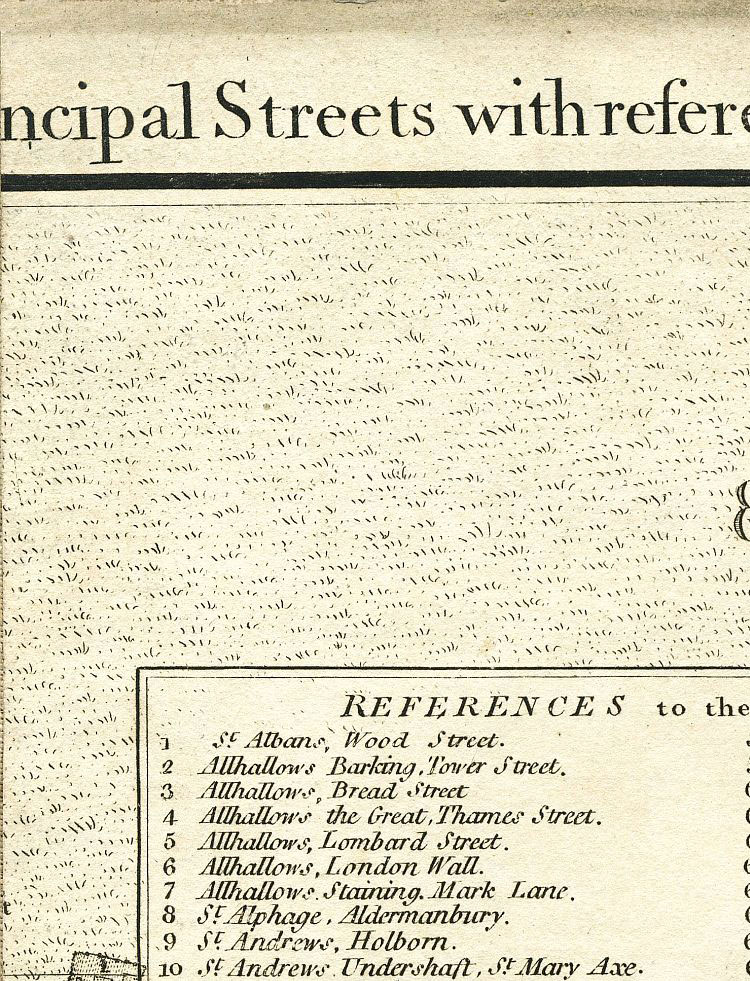 ncipal Streets with refere
8
REFERENCES to the
1 St Albans, Wood Street.
2 Allhallows Barking, Tower Street.
3 Allhallows, Bread Street
4 Allhallows the Great, Thames Street.
5 Allhallows, Lombard Street.
6 Allhallows, London Wall.
7 Allhallows Staining, Mark Lane.
8 St Alphage, Aldermanbury.
9 St Andrews, Holborn.
10 St Andrews Undershaft, St Mary Axe.
t